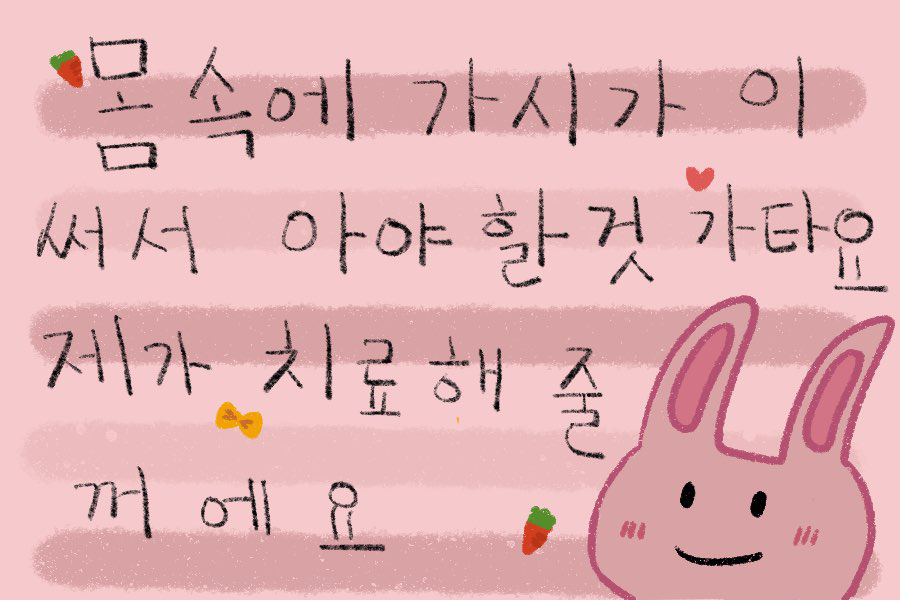 몸속에 가시가 이
써서 아야할것 가타요
제가 치료해 줄
께에요